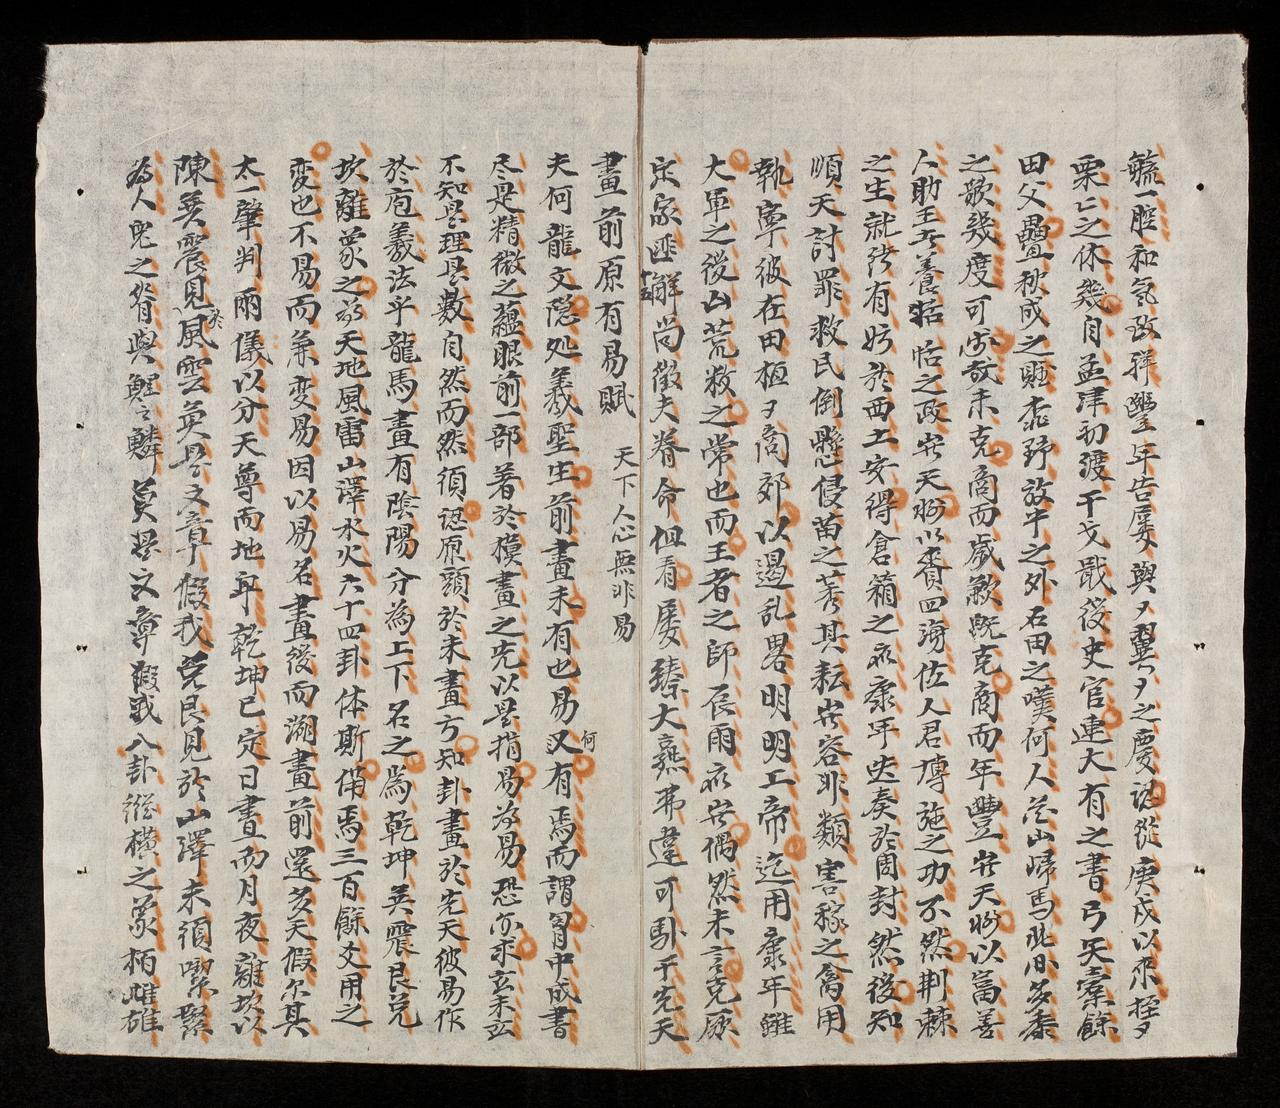 毓一腔和氣政祥豐年告屢與々翼々之慶詎從庚戌以來挃々
栗々之休幾自孟津初渡干戈戢後史官連大有之書弓矢櫜餘
田父疊秋成之賑桃野放牛之外石田之嘆何人花山歸馬此旧多黍
之歌幾度可
未克商而歲歉既克商而年豐
以富善
人助王
養
恬之政
以賚四海佐人君博施之功不然荆棘
之生就
有妨於西土安得倉箱之
康年迭奏於周封然後知
順天討罪救民倒懸侵苗之莠其耘
容非類害稼之禽用
執寧彼在田植々商郊以遏乱畧明明上帝迄用康年雖
大軍之後山荒救之常也而王者之師辰雨
偶然未言克厥
家匪解尚徵夫眷命但看屢臻大熟弗違可馭乎先天
畫前原有易賦 天下人心無非易
夫何龍文隐处羲聖生前畫未有也易又何有焉而謂胷中成書
尽是精微之蘊眼前一部著於模畫之先以是指易為易恐尔求玄未玄
不知是理是數自然而然須認原頭於未畫方知卦畫於先天彼易作
於庖羲法乎龍馬畫有陰陽分為上下名之為乾坤巽震艮兌
坎離象之為天地風雷山澤水火六十四卦体斯備焉三百餘爻用之
变也不易而兼变易因以易名畫後而溯畫前還多天假尔其
太一肇判兩儀以分天尊而地卑乾坤已定日晝而月夜離坎以
陳巽震見於風雲莫是文章假我兌艮見於山澤未須喫緊
為人兒之脊與鯉之鱗莫是文章假我八卦縱横之象柄雌雄